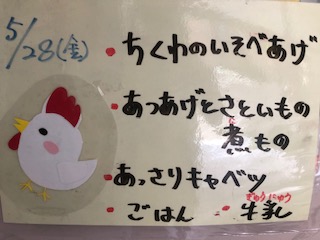 5/28(金)
・ちくわのいそべあげ
・あつあげとさといもの
煮もの
・あっさりキャベツ
・ごはん ・牛乳
ぎゅうにゅう